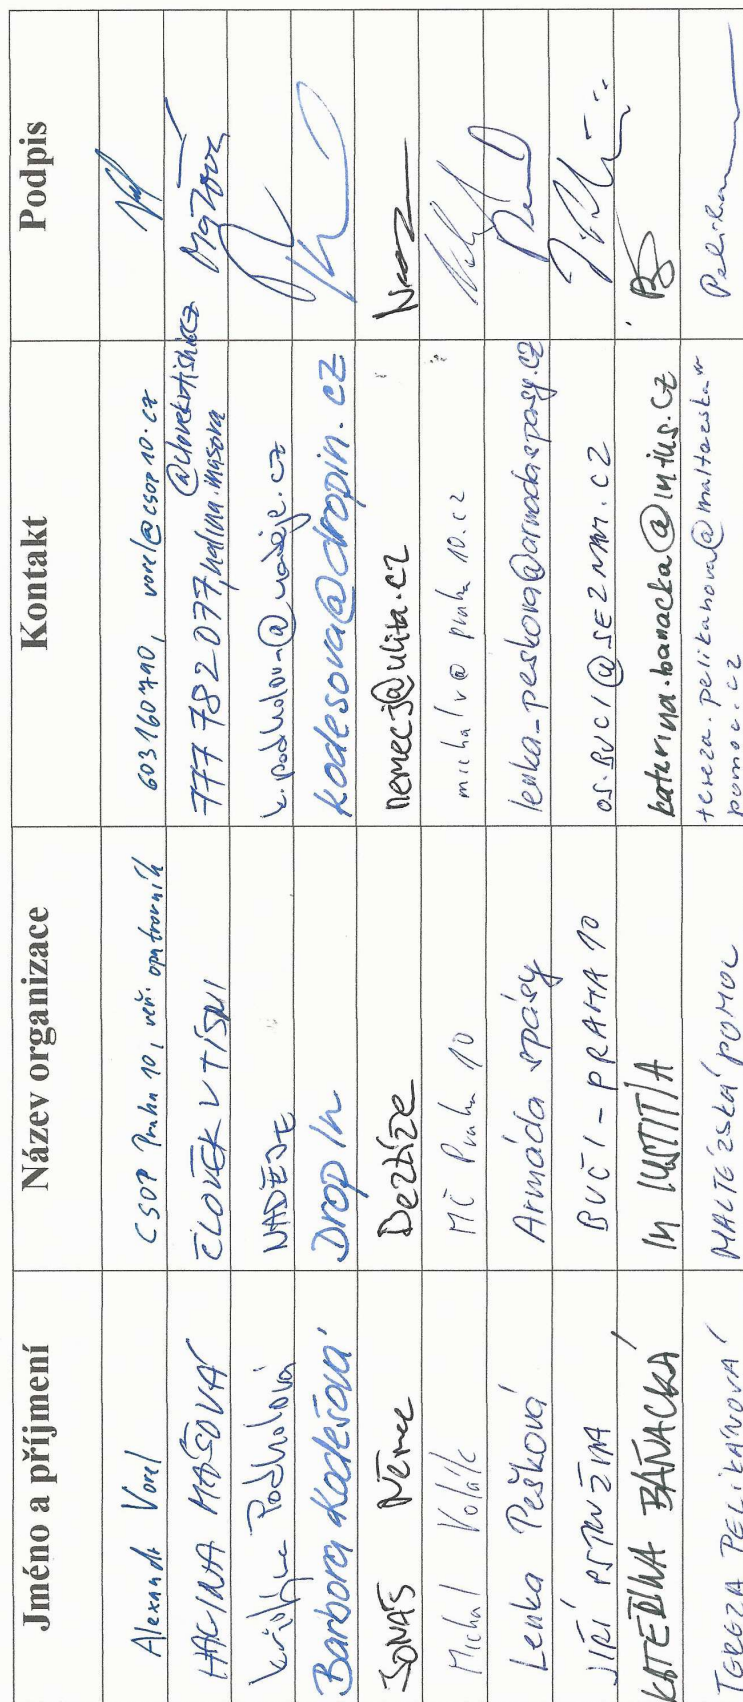 Jméno a příjmení Název organizace Kontakt Podpis
Alexandr Vorel ČSOP Praha 10, veř. opatrovník 603160790, vorel@csop10.cz
HALINA MAŠOVÁ ČLOVĚK V TÍSNI 777 782 077, halina.masova Mašová
@clovekvtisni.cz
Kristýna Podholová NADĚJE k.podholova@nadeje.cz
Barbora Kodešová Drop In kodesova@dropin.cz
JONÁŠ Němec Beztíže nemecj@ulita.cz
Michal Volák MČ Praha 10 michalv@praha10.cz
Lenka Pešková Armáda spásy lenka_peskova@armadaspasy.cz
JIŘÍ PSTRUŽINA BUČI - PRAHA 10 OS.BUCI@SEZNAM.CZ
KATEŘINA BAŇACKÁ IN IUSTITIA katerina.banacka@in-ius.cz
TEREZA PELIKÁNOVÁ MALTÉZSKÁ POMOC tereza.pelikanova@maltezska
pomoc.cz